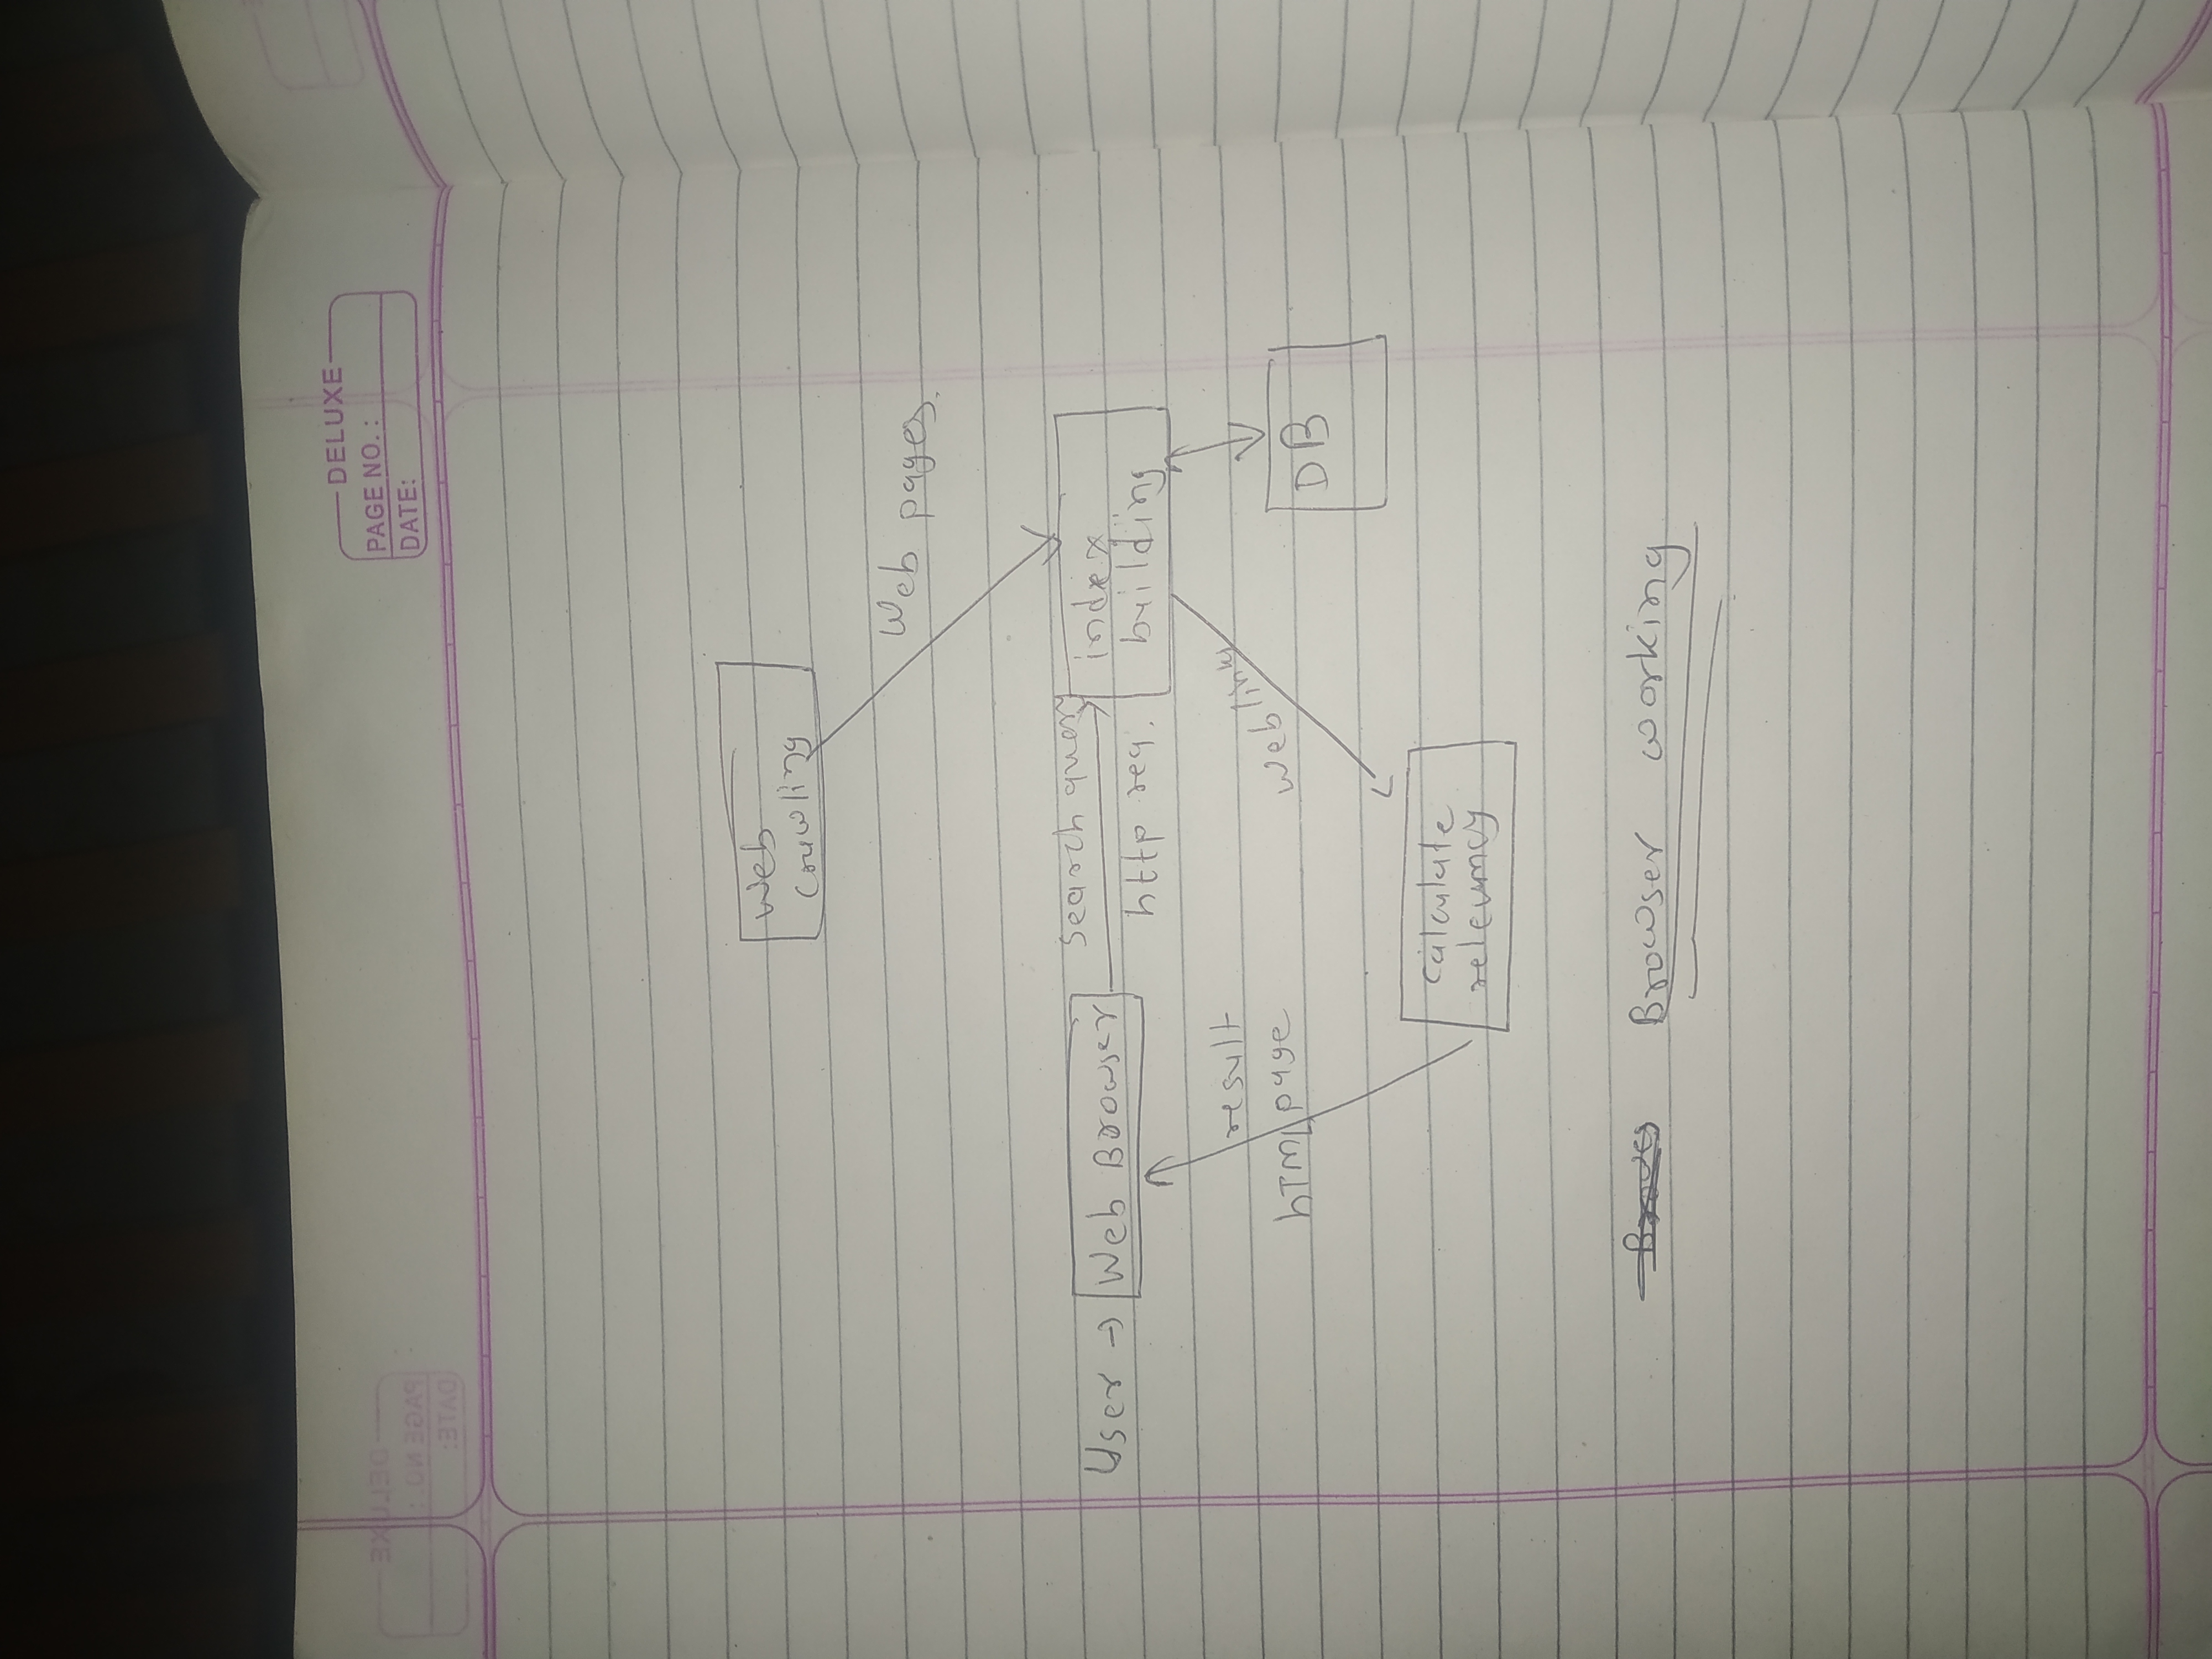 DELUXE
PAGE NO. :
DATE:
DELUXE
PAGE NO. :
DATE:
Web
crawling
Web pages
User → Web Browser
search query
http req.
index
building
result
hTML page
Web links
DB
calculate
relevancy
Browser working